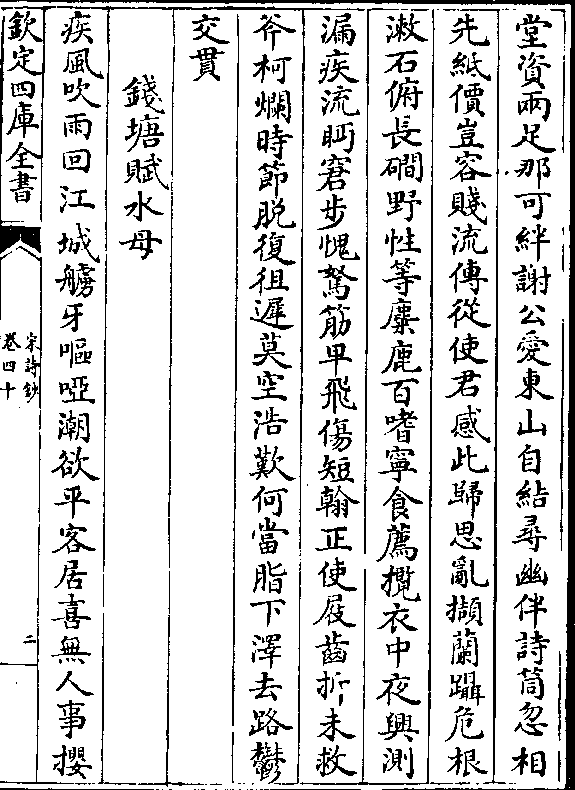 堂資兩足那可絆謝公愛東山自結尋幽伴詩筒忽相
先紙價豈容賤流傳從使君感此歸思亂擷蘭躡危根
漱石俯長磵野性等麋鹿百嗜寧食薦攬衣中夜興測
漏疾流眄窘步愧駑筋卑飛傷短翰正使屐齒折未救
斧柯爛時節脫復徂遲莫空浩歎何當脂下澤去路鬱
交貫
錢塘賦水母
疾風吹雨回江城艣牙嘔啞潮欲平客居喜無人事攖
欽定四庫全書
宋詩鈔
卷四十
二